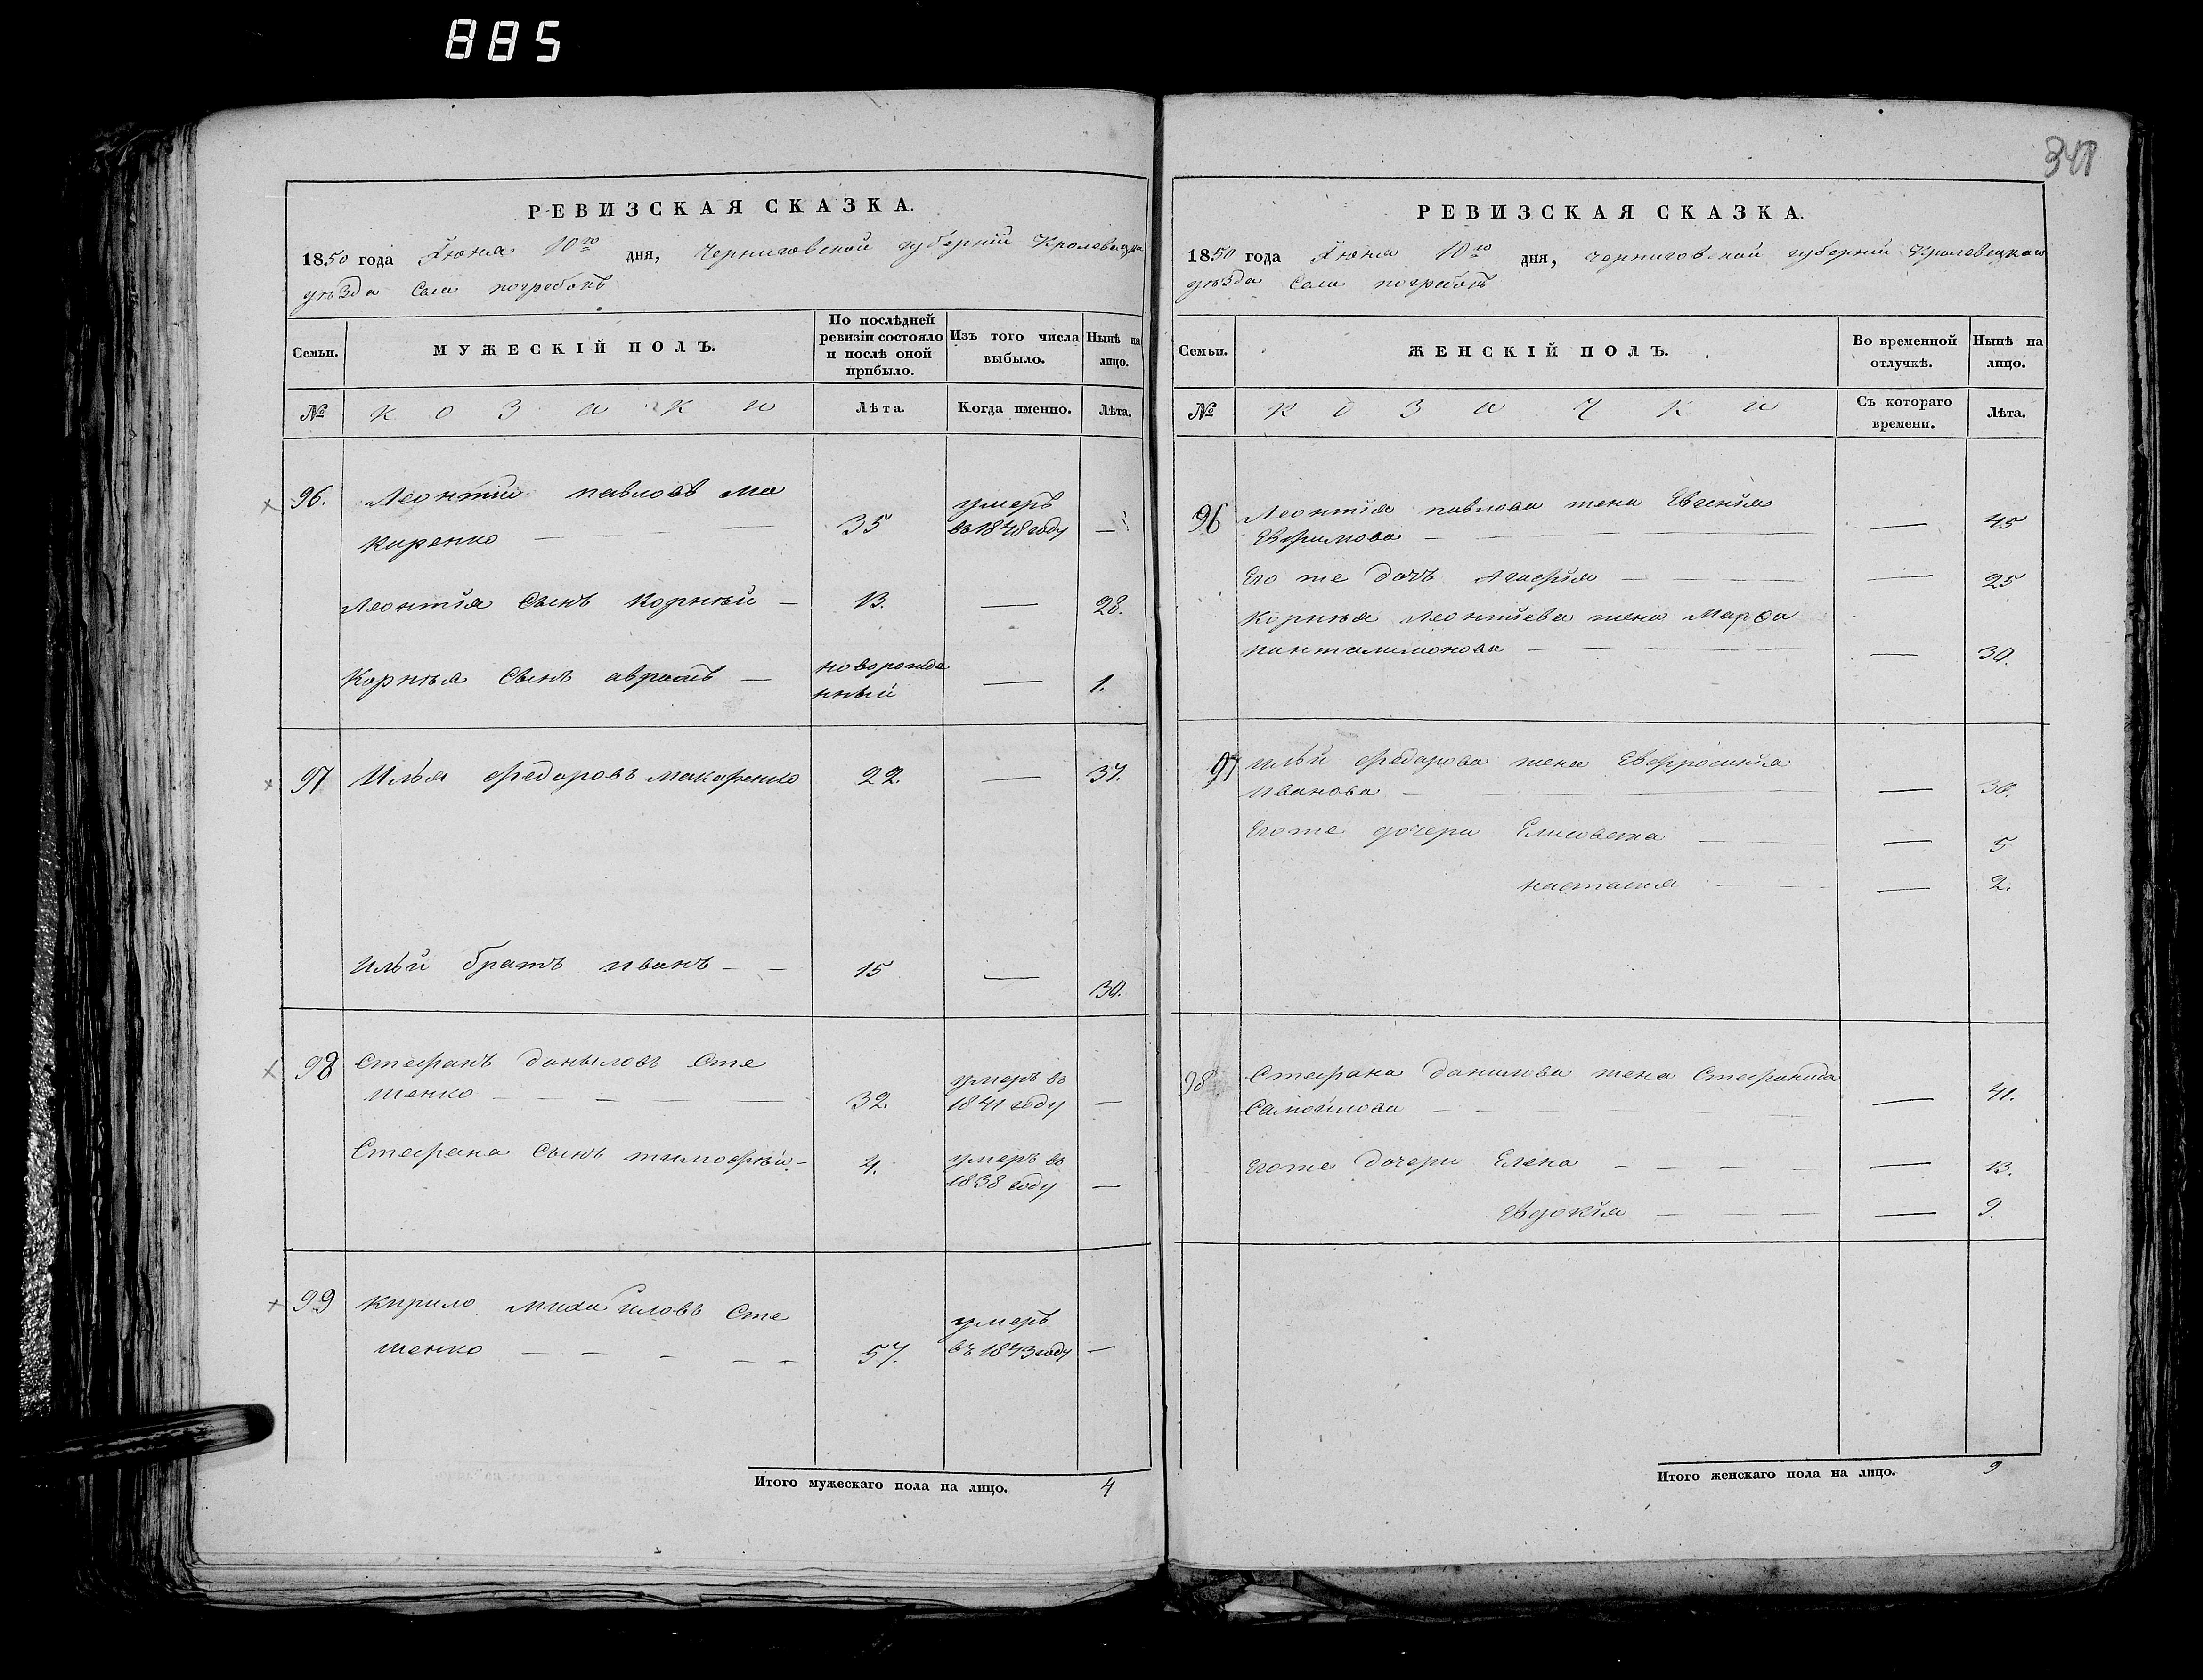 885
341
РЕВИЗСКАЯ СКАЗКА.
1850 года Іюня 10го дня, Черниговской губерніи Кролевецкаго
уѣзда Села погребокъ
Семьи.
МУЖЕСКІЙ ПОЛЪ.
По послѣдней ревизіи состояло и послѣ оной прибыло.
Изъ того числа выбыло.
Нынѣ на лицо.
№
козаки
Лѣта.
Когда именно.
Лѣта.
96. Леонтій павловъ ма
каренко — — — 35 умеръ въ 1848 году —
Леонтія Сынъ Корнѣй — 13. — 28.
Корнѣя Сынъ аврамъ — новорожденный — 1.
97 Илья федоровъ макаренко 22. — 37.
Ильи братъ иванъ — — 15 — 30.
98 Стефанъ даныловъ Сте
шенко — — — — 32. умеръ въ 1841 году —
Стефана Сынъ тимофѣй — 4. умеръ въ 1838 году —
99 кирило михайловъ Сте
шенко — — — — — 57. умеръ въ 1843 году —
Итого мужескаго пола на лицо. 4
РЕВИЗСКАЯ СКАЗКА.
1850 года Іюня 10го дня, черниговской губерніи Кролевецкаго
уѣзда Села погребокъ
Семьи.
ЖЕНСКІЙ ПОЛЪ.
Во временной отлучкѣ.
Нынѣ на лицо.
№
козачки
Съ котораго времени.
Лѣта.
96 Леонтія павлова жена Евгенія
Ефимова — — — — — 45
Его же дочь Агафія — — — — 25
Корнѣя Леонтіева жена Марѳа
пантелимонова — — — — — 30.
97 ильи федорова жена Ефросинія
иванова — — — 30.
Его же дочери Елисавета — — — — 5
настасия — — — — 2.
98 Стефана данилова жена Стефанида
Самойлова — — — — — — 41.
Его же дочери Елена — — — — — 13.
Евдокія — — — — 9.
Итого женскаго пола на лицо. 9